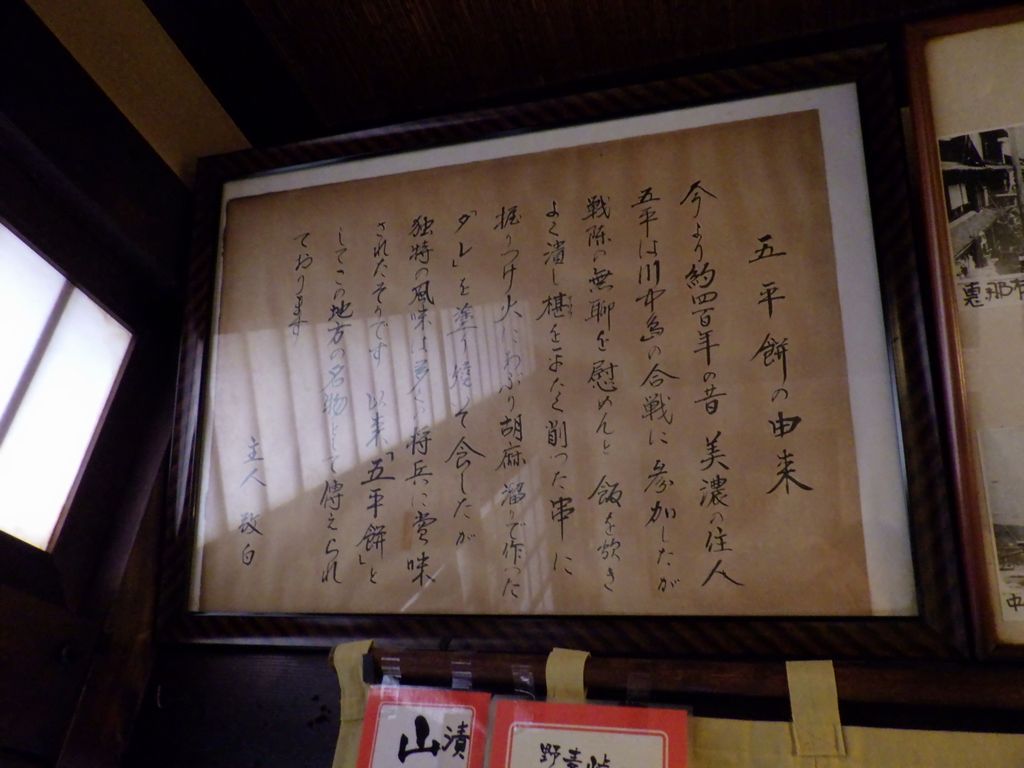 五平餅の由来
今より約四百年の昔 美濃の住人
五平は川中島の合戦に参加したが
戦陣の無聊を慰めんと 飯を炊き
よく潰し椹を平たく削った串に
握りつけ火にあぶり胡麻溜りで作った
「タレ」を塗り焼いて食したが
独特の風味は多くの将兵に賞味
されたそうです 以来「五平餅」と
してこの地方の名物として傳えられ
ております
主人 敬白
山
漬